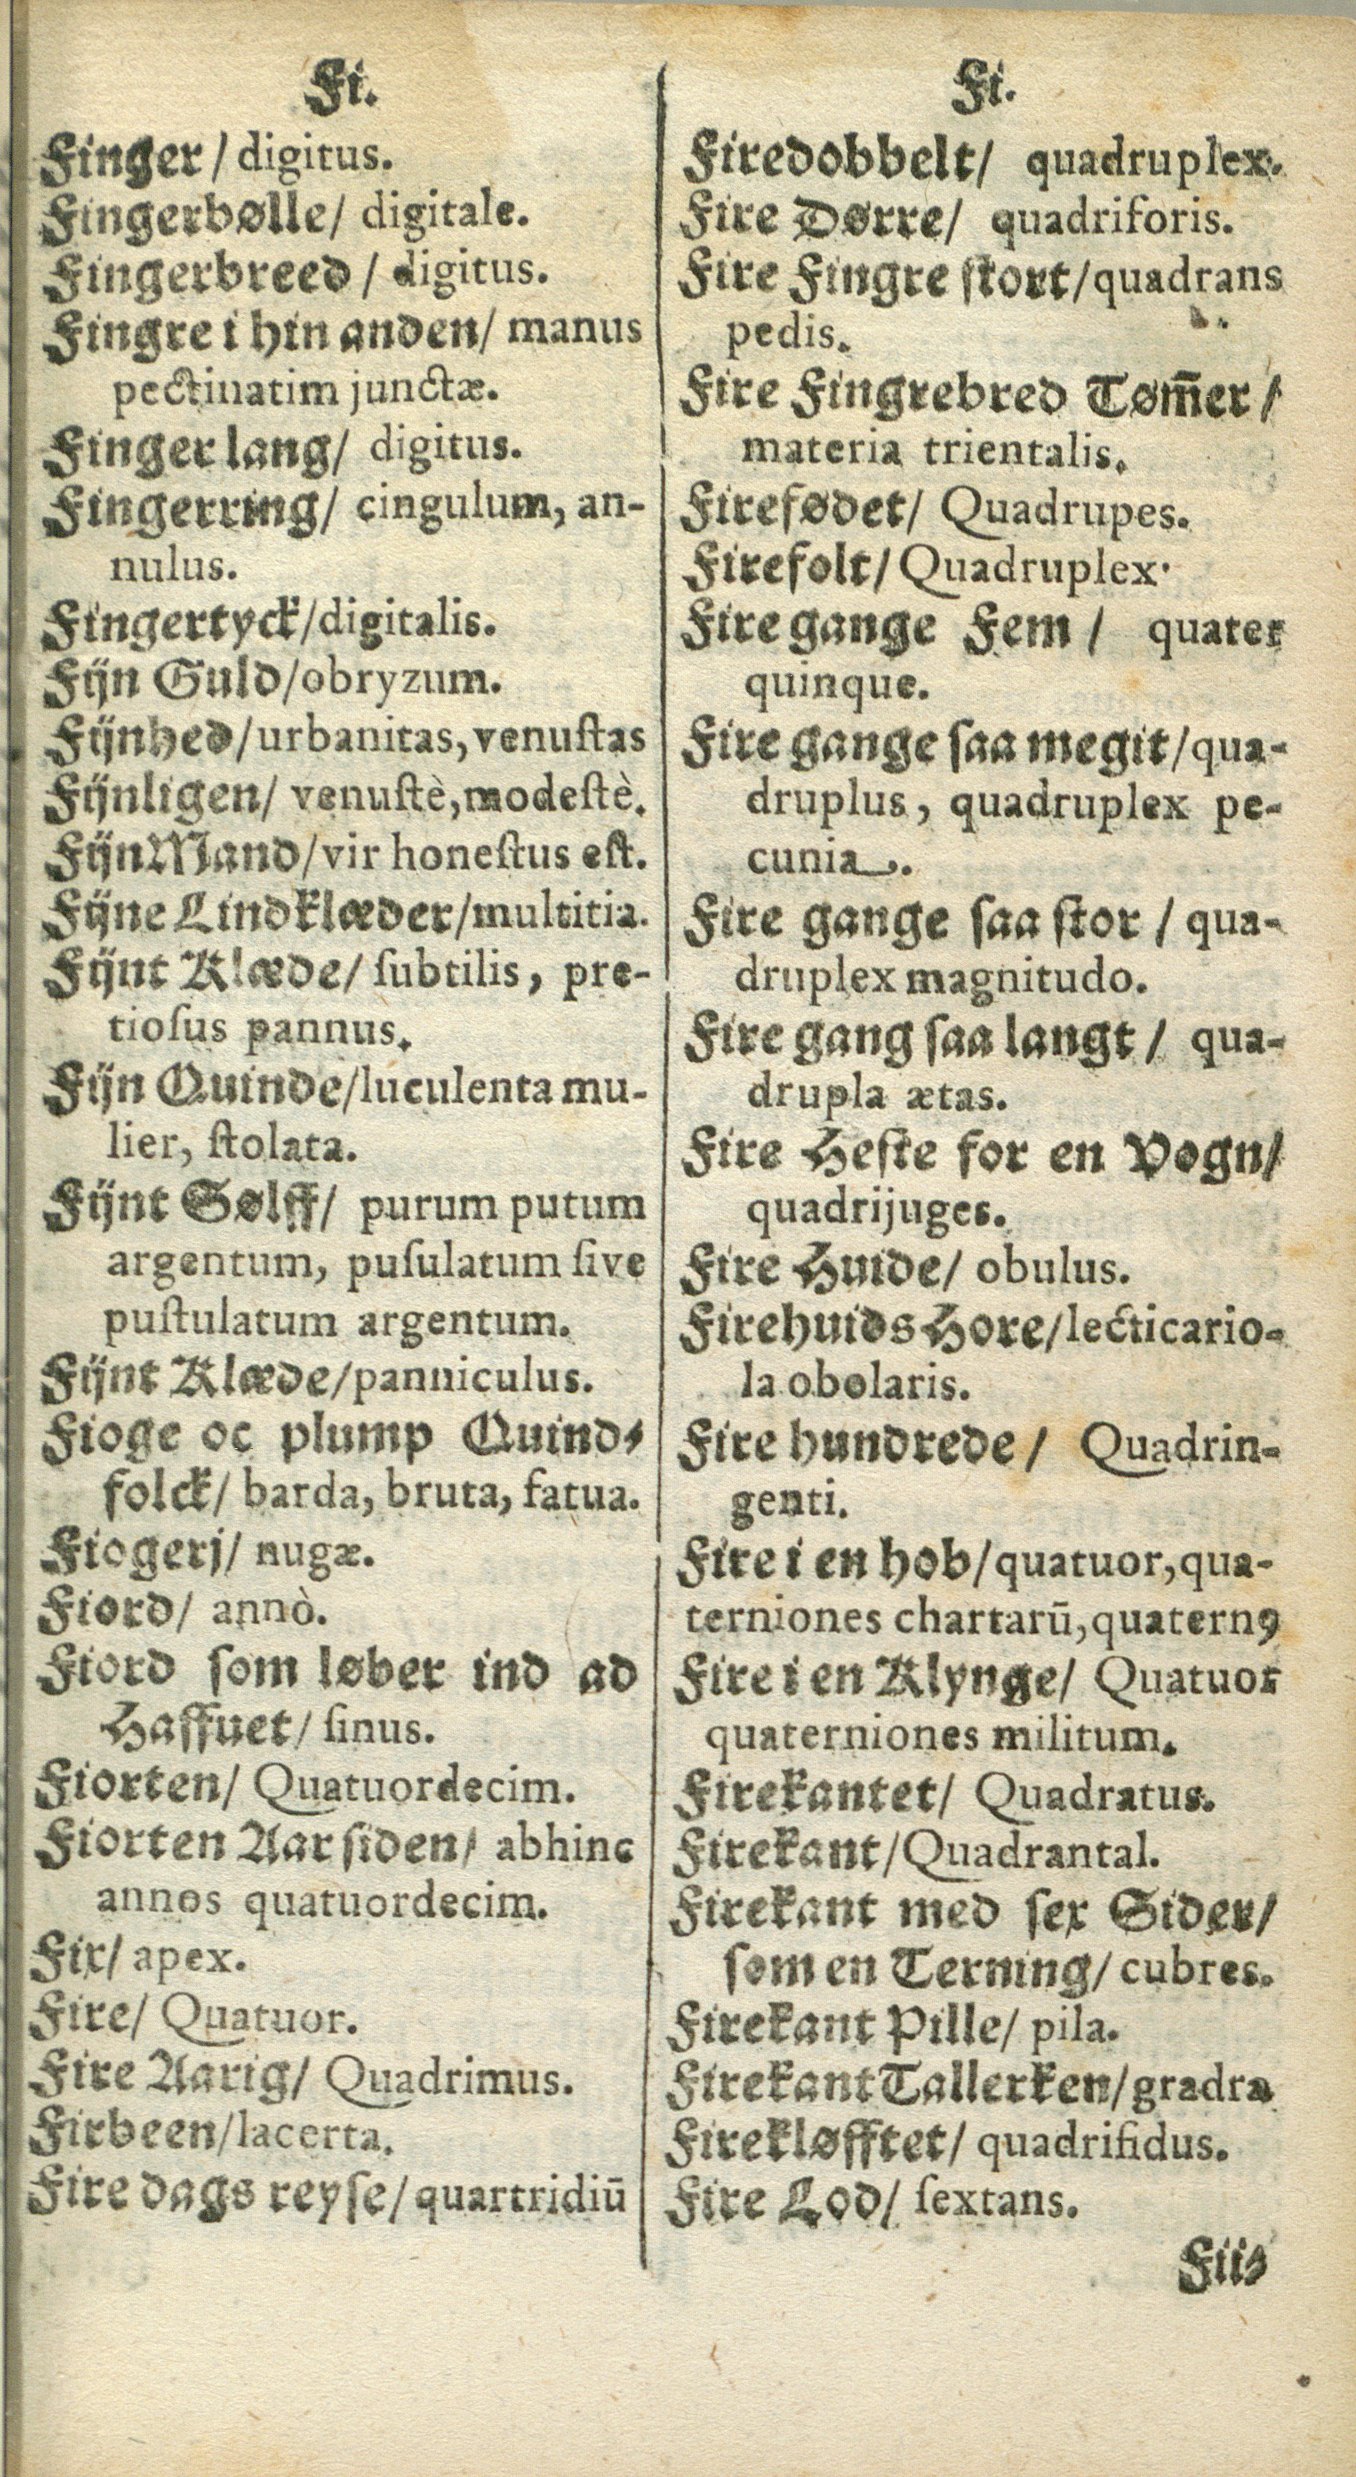 Fi.
Finger / digitus.
Fingerbølle / digitale.
Fingerbreed / digitus.
Fingre i hin anden / manus
pectinatim junctæ.
Finger lang / digitus.
Fingerring / cingulum, an-
nulus.
Fingertyck / digitalis.
Fijn Guld / obryzum.
Fijnhed / urbanitas, venuſtas
Fijnligen / venuſtè, modeſtè.
Fijn Mand / vir honeſtus eſt.
Fijne Lindklæder / multitia.
Fijnt Klæde / ſubtilis, pre-
tioſus pannus.
Fijn Quinde / luculenta mu-
lier, ſtolata.
Fijnt Sølff / purum putum
argentum, puſulatum ſive
puſtulatum argentum.
Fijnt Klæde / panniculus.
Fioge oc plump Quind-
folck / barda, bruta, fatua.
Fiogerj / nugæ.
Fiord / annò.
Fiord ſom løber ind ad
Haffuet / ſinus.
Fiorten / Quatuordecim.
Fiorten Aar ſiden / abhinc
annos quatuordecim.
Fir / apex.
Fire / Quatuor.
Fire Aarig / Quadrimus.
Firbeen / lacerta.
Fire dags reyſe / quartridiū
Fi.
Firedobbelt / quadruplex.
Fire Dørre / quadriforis.
Fire Fingre ſtort / quadrans
pedis.
Fire Fingrebred Tøm̄er /
materia trientalis.
Firefødet / Quadrupes.
Firefolt / Quadruplex.
Fire gange Fem / quater
quinque.
Fire gange ſaa megit / qua-
druplus, quadruplex pe-
cunia.
Fire gange ſaa ſtor / qua-
druplex magnitudo.
Fire gang ſaa langt / qua-
drupla ætas.
Fire Heſte for en Vogn /
quadrijuges.
Fire Huide / obulus.
Firehuids Hore / lecticario-
la obolaris.
Fire hundrede / Quadrin-
genti.
Fire i en hob / quatuor, qua-
terniones chartarū, quaternꝯ
Fire i en Klynge / Quatuor
quaterniones militum.
Firekantet / Quadratus.
Firekant / Quadrantal.
Firekant med ſex Sider /
ſom en Terning / cubres.
Firekant Pille / pila.
Firekant Tallerken / gradra
Firekløfftet / quadrifidus.
Fire Lod / ſextans.
Fiis